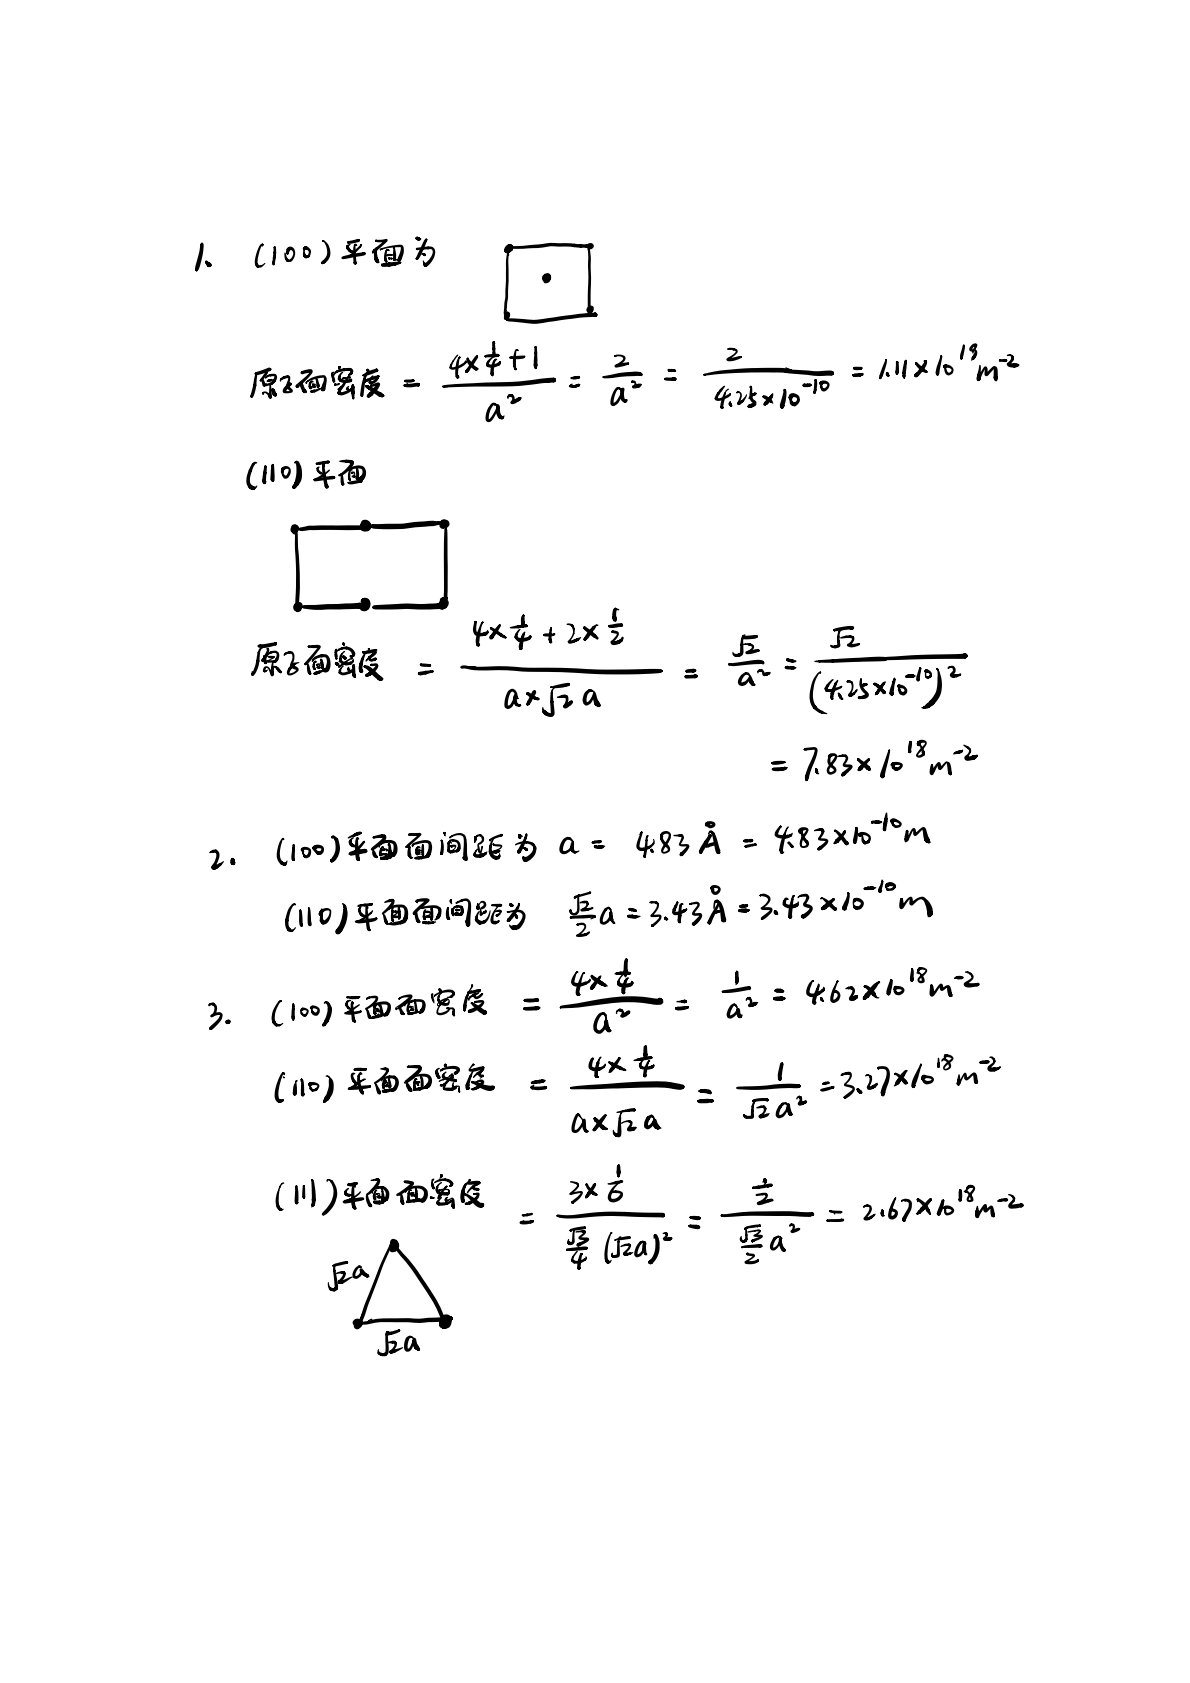 1. (100)平面为
原子面密度 = (4×1/4+1)/a² = 2/a² = 2/(4.25×10⁻¹⁰) = 1.11×10¹⁹m⁻²
(110)平面
原子面密度 = (4×1/4+2×1/2)/(a×√2 a) = √2/a² = √2/(4.25×10⁻¹⁰)²
= 7.83×10¹⁸m⁻²
2. (100)平面面间距为 a = 4.83Å = 4.83×10⁻¹⁰m
(110)平面面间距为 √2/2 a = 3.43Å = 3.43×10⁻¹⁰m
3. (100)平面面密度 = (4×1/4)/a² = 1/a² = 4.62×10¹⁸m⁻²
(110)平面面密度 = (4×1/4)/(a×√2 a) = 1/(√2 a²) = 3.27×10¹⁸m⁻²
(111)平面面密度 = (3×1/6)/(√3/4 (√2a)²) = (1/2)/(√3/2 a²) = 2.67×10¹⁸m⁻²
√2a
√2a